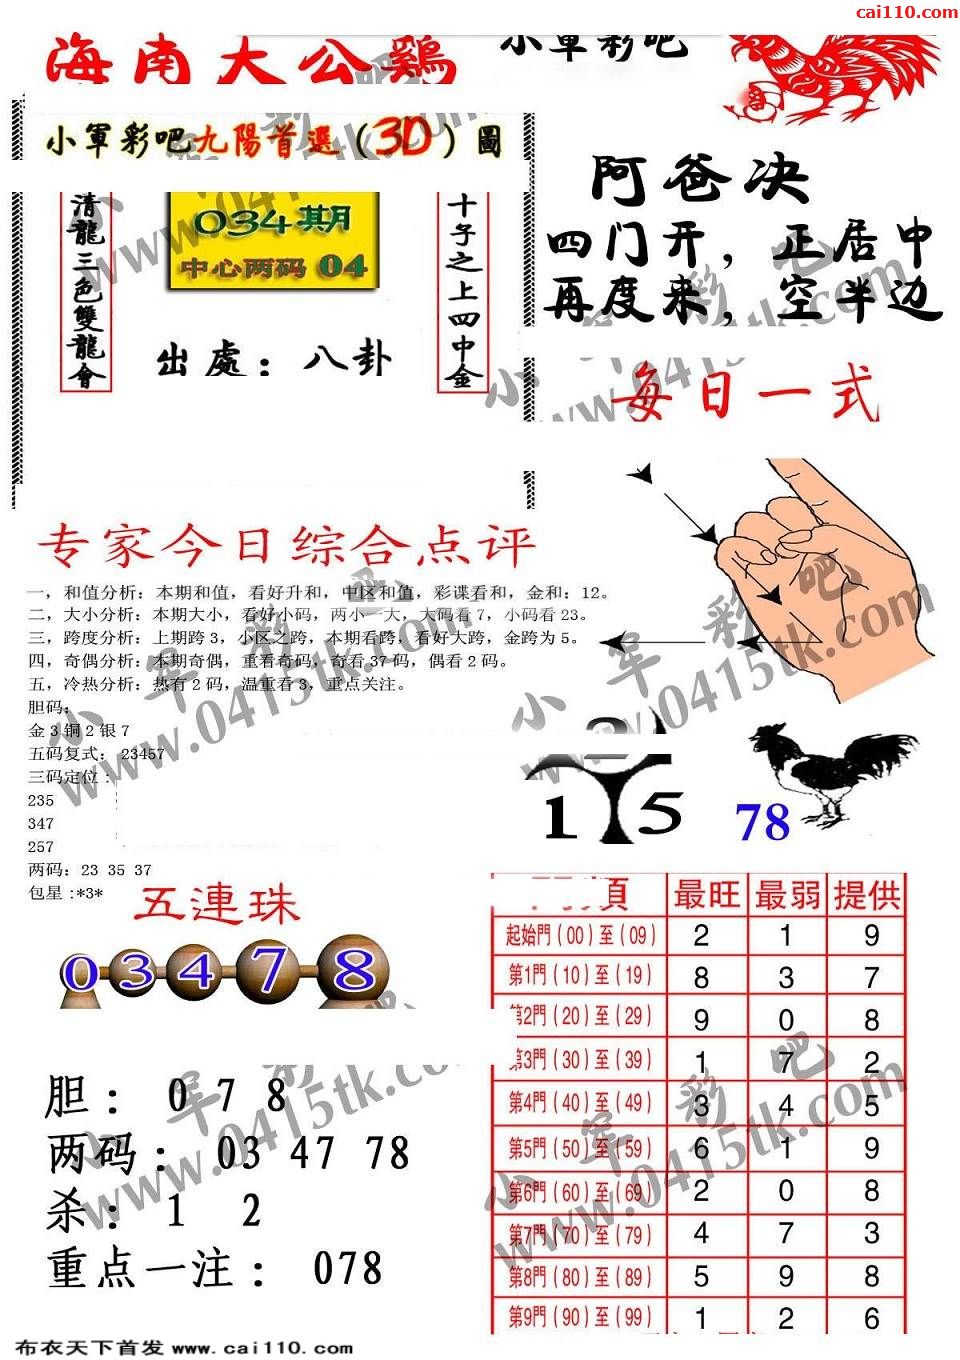 cai110.com
海南大公鷄
小軍彩吧
小軍彩吧九陽首選(3D)圖
清龍三色雙龍會
034期
中心两码 04
出處：八卦
十字之上四中金
阿爸决
四门开，正居中
再度来，空半边
每日一式
专家今日综合点评
一，和值分析：本期和值，看好升和，中区和值，彩谍看和，金和：12。
二，大小分析：本期大小，看好小码，两小一大，大码看7，小码看23。
三，跨度分析：上期跨3，小区之跨，本期看跨，看好大跨，金跨为5。
四，奇偶分析：本期奇偶，重看奇码，奇看37码，偶看2码。
五，冷热分析：热有2码，温重看3，重点关注。
胆码：
金3铜2银7
五码复式：23457
三码定位：
235
347
257
两码：23 35 37
包星:*3*
1 5
78
五連珠
0 3 4 7 8
胆： 0 7 8
两码： 03 47 78
杀： 1 2
重点一注： 078
類 最旺 最弱 提供
起始門（00）至（09） 2 1 9
第1門（10）至（19） 8 3 7
第2門（20）至（29） 9 0 8
第3門（30）至（39） 1 7 2
第4門（40）至（49） 3 4 5
第5門（50）至（59） 6 1 9
第6門（60）至（69） 2 0 8
第7門（70）至（79） 4 7 3
第8門（80）至（89） 5 9 8
第9門（90）至（99） 1 2 6
小军彩吧
www.0415tk.com
布衣天下首发 www.cai110.com